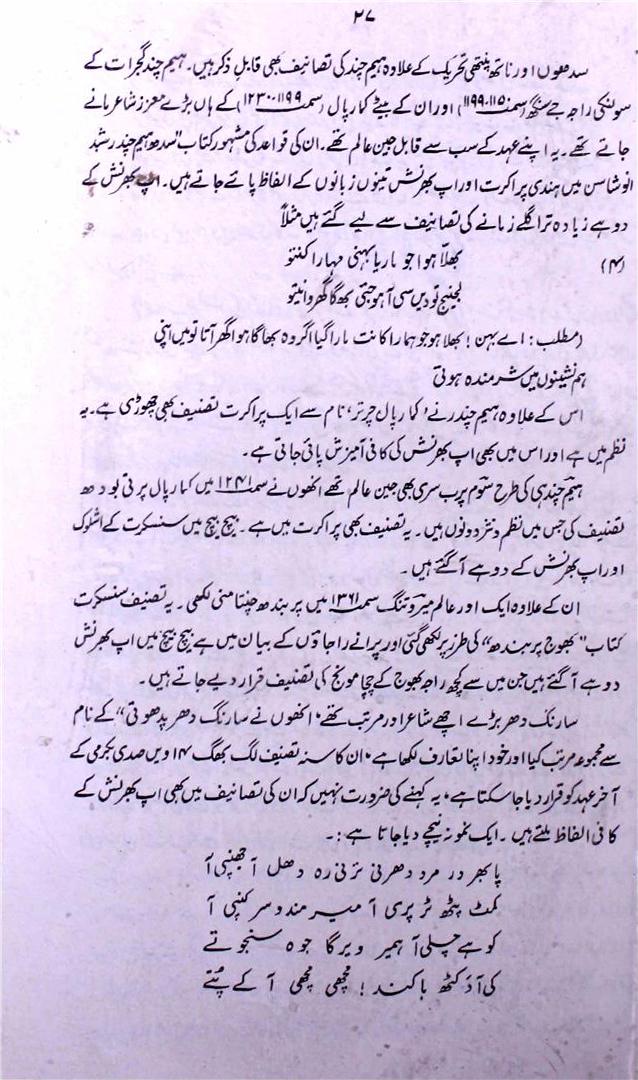 ۲۷
سدھوں اور ناتھ پنتھی تحریک کے علاوہ ہیم چند کی تصانیف بھی قابل ذکر ہیں۔ ہیم چند گجرات کے
سولنکی راجہ جے سنگھ (سمت ۱۱۵۰۔۱۱۹۹) اور ان کے بیٹے کمار پال (سمت ۱۱۹۹۔۱۲۳۰) کے ہاں بڑے معزز شاعر مانے
جاتے تھے۔ یہ اپنے عہد کے سب سے قابل جین عالم تھے۔ ان کی قواعد کی مشہور کتاب "سدھ ہیم چندر شبد
انوشاسن میں ہندی پراکرت اور اپ بھرنش تینوں زبانوں کے الفاظ پائے جاتے ہیں۔ اپ بھرنش کے
دوہے زیادہ تر اگلے زمانے کی تصانیف سے لیے گئے ہیں مثلاً
(۴) بھلّا ہوا جو ماریا بہنی مہارا کنتو
لجنیج تو دیں سی آہو جتی بھگا گھر و انیتو
(مطلب: اے بہن! بھلا ہو جو ہمارا کانت مارا گیا اگر وہ بھاگا ہوا گھر آتا تو میں اپنی
ہم نشینوں میں شرمندہ ہوتی
اس کے علاوہ ہیم چندر نے 'کمار پال چرتر' نام سے ایک پراکرت تصنیف بھی چھوڑی ہے۔ یہ
نظم میں ہے اور اس میں بھی اپ بھرنش کی کافی آمیزش پائی جاتی ہے۔
ہیم چند ہی کی طرح سوم پرب سری بھی جین عالم تھے انھوں نے سمت ۱۲۴۱ میں کمار پال پرتی بودھ
تصنیف کی جس میں نظم و نثر دونوں ہیں۔ یہ تصنیف بھی پراکرت میں ہے۔ بیچ بیچ میں سنسکرت کے اشلوک
اور اپ بھرنش کے دوہے آ گئے ہیں۔
ان کے علاوہ ایک اور عالم میروتنگ سمت ۱۳۶۱ میں پربندھ چنتا منی لکھی۔ یہ تصنیف سنسکرت
کتاب "بھوج پربندھ" کی طرز پر لکھی گئی اور پرانے راجاؤں کے بیان میں ہے بیچ بیچ میں اپ بھرنش
دوہے آ گئے ہیں جن میں سے کچھ راجہ بھوج کے چچا مونج کی تصنیف قرار دیے جاتے ہیں۔
سارنگ دھر بڑے اچھے شاعر اور مرتب تھے۔ انھوں نے سارنگ دھر پدھوتی" کے نام
سے مجموعہ مرتب کیا اور خود اپنا تعارف لکھا ہے۔ ان کا سنہ تصنیف لگ بھگ ۱۴ ویں صدی بکرمی کے
آخر عہد کو قرار دیا جا سکتا ہے۔ یہ کہنے کی ضرورت نہیں کہ ان کی تصانیف میں بھی اپ بھرنش کے
کافی الفاظ ملتے ہیں۔ ایک نمونہ نیچے دیا جاتا ہے :۔
پا بھر در مرد دھرنی ترنی رہ دھل آ جھنپی آ
کمٹ پٹھ ٹرپری آ میر مندو سر کنپی آ
کوہے چلی آ ہمیر ویر گا جوہ سنجوتے
کی آؤ کٹھ ہا کند! مچھی مچھی آ کے پتے